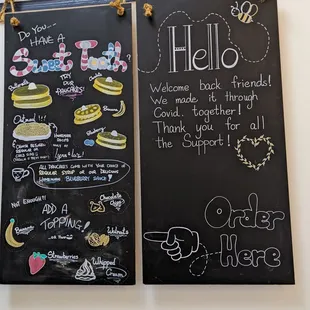 Do You...
HAVE A
Sweet Tooth?
TRY
OUR
PANCAKES!
Buttermilk
Banana
Blueberry
Oatmeal!!!
ALL PANCAKES COME WITH YOUR CHOICE OF
REGULAR SYRUP OR OUR DELICIOUS
HOMEMADE BLUEBERRY SAUCE!
NOT ENOUGH?!
ADD A
TOPPING!
Chocolate
Chips
Banana
Walnuts
Strawberries
Whipped
Cream
Hello
Welcome back friends!
We made it through
Covid, together!
Thank you for all
the Support!
Order
Here